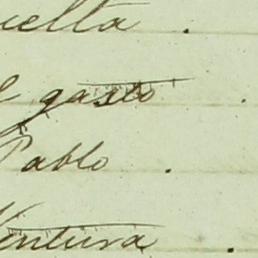 uelta .
l gasto .
Pablo .
Ventura .